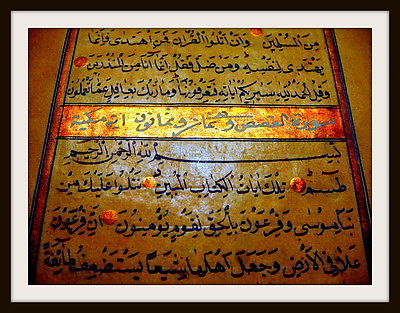 مِنَ الْمُسْلِمِينَ وَاَنْ اَتْلُوَا الْقُرْاٰنَ فَمَنِ اهْتَدٰى فَاِنَّمَا
يَهْتَدِى لِنَفْسِهِ وَمَنْ ضَلَّ فَقُلْ اِنَّمَا اَنَا مِنَ الْمُنْذِرِينَ
وَقُلِ الْحَمْدُ لِلّٰهِ سَيُرِيكُمْ اٰيَاتِهِ فَتَعْرِفُونَهَا وَمَا رَبُّكَ بِغَافِلٍ عَمَّا تَعْمَلُونَ
سورة القصص وهى ثمان وثمانون اية مكية
بِسْمِ اللهِ الرَّحْمٰنِ الرَّحِيمِ
طٰسٓمٓ تِلْكَ اٰيَاتُ الْكِتَابِ الْمُبِينِ نَتْلُوا عَلَيْكَ مِنْ
نَبَإِ مُوسٰى وَفِرْعَوْنَ بِالْحَقِّ لِقَوْمٍ يُؤْمِنُونَ اِنَّ فِرْعَوْنَ
عَلَا فِى الْاَرْضِ وَجَعَلَ اَهْلَهَا شِيَعًا يَسْتَضْعِفُ طَائِفَةً